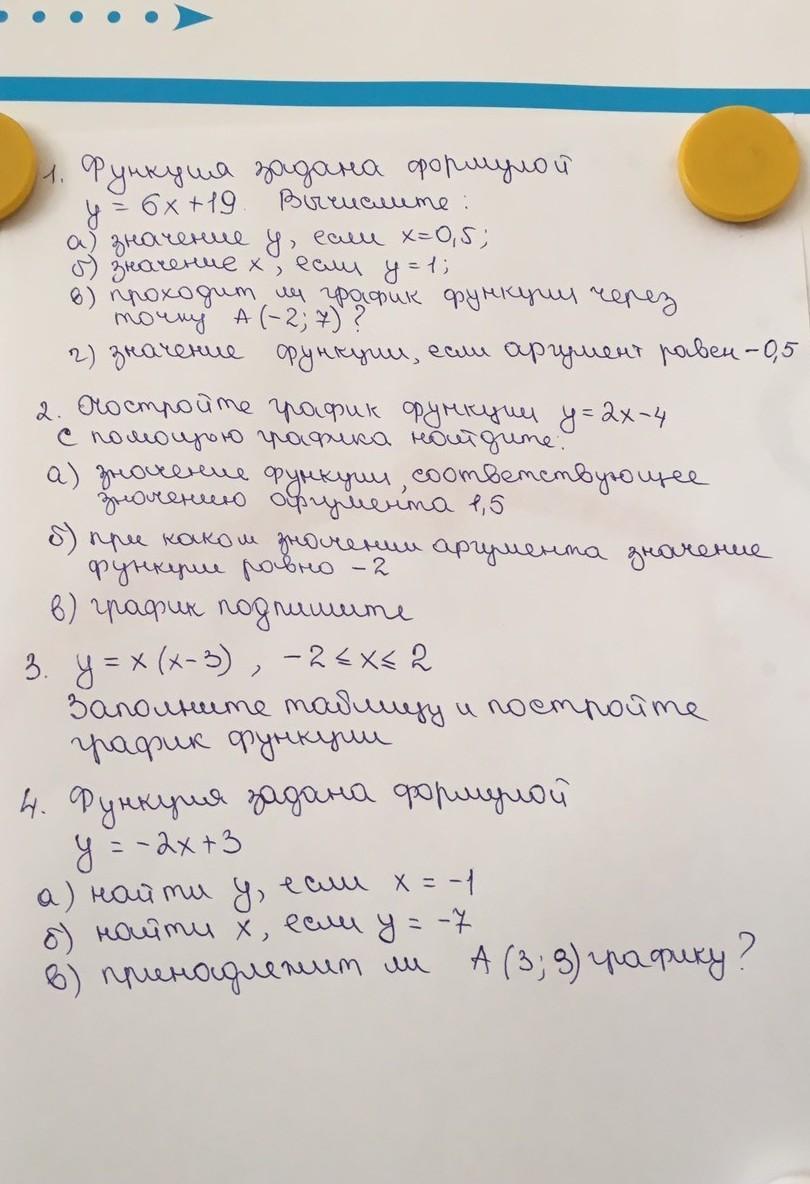 1. Функция задана формулой
y = 6x + 19. Вычислите:
а) значение y, если x=0,5;
б) значение x, если y = 1;
в) проходит ли график функции через
точку A (-2; 7) ?
г) значение функции, если аргумент равен -0,5
2. Постройте график функции y = 2x-4
С помощью графика найдите:
а) значение функции, соответствующее
значению аргумента 1,5
б) при каком значении аргумента значение
функции равно -2
в) график подпишите
3. y = x (x-3) , -2 ≤ x ≤ 2
Заполните таблицу и постройте
график функции
4. Функция задана формулой
y = -2x+3
а) найти y, если x = -1
б) найти x, если y = -7
в) принадлежит ли A (3; 9) графику?